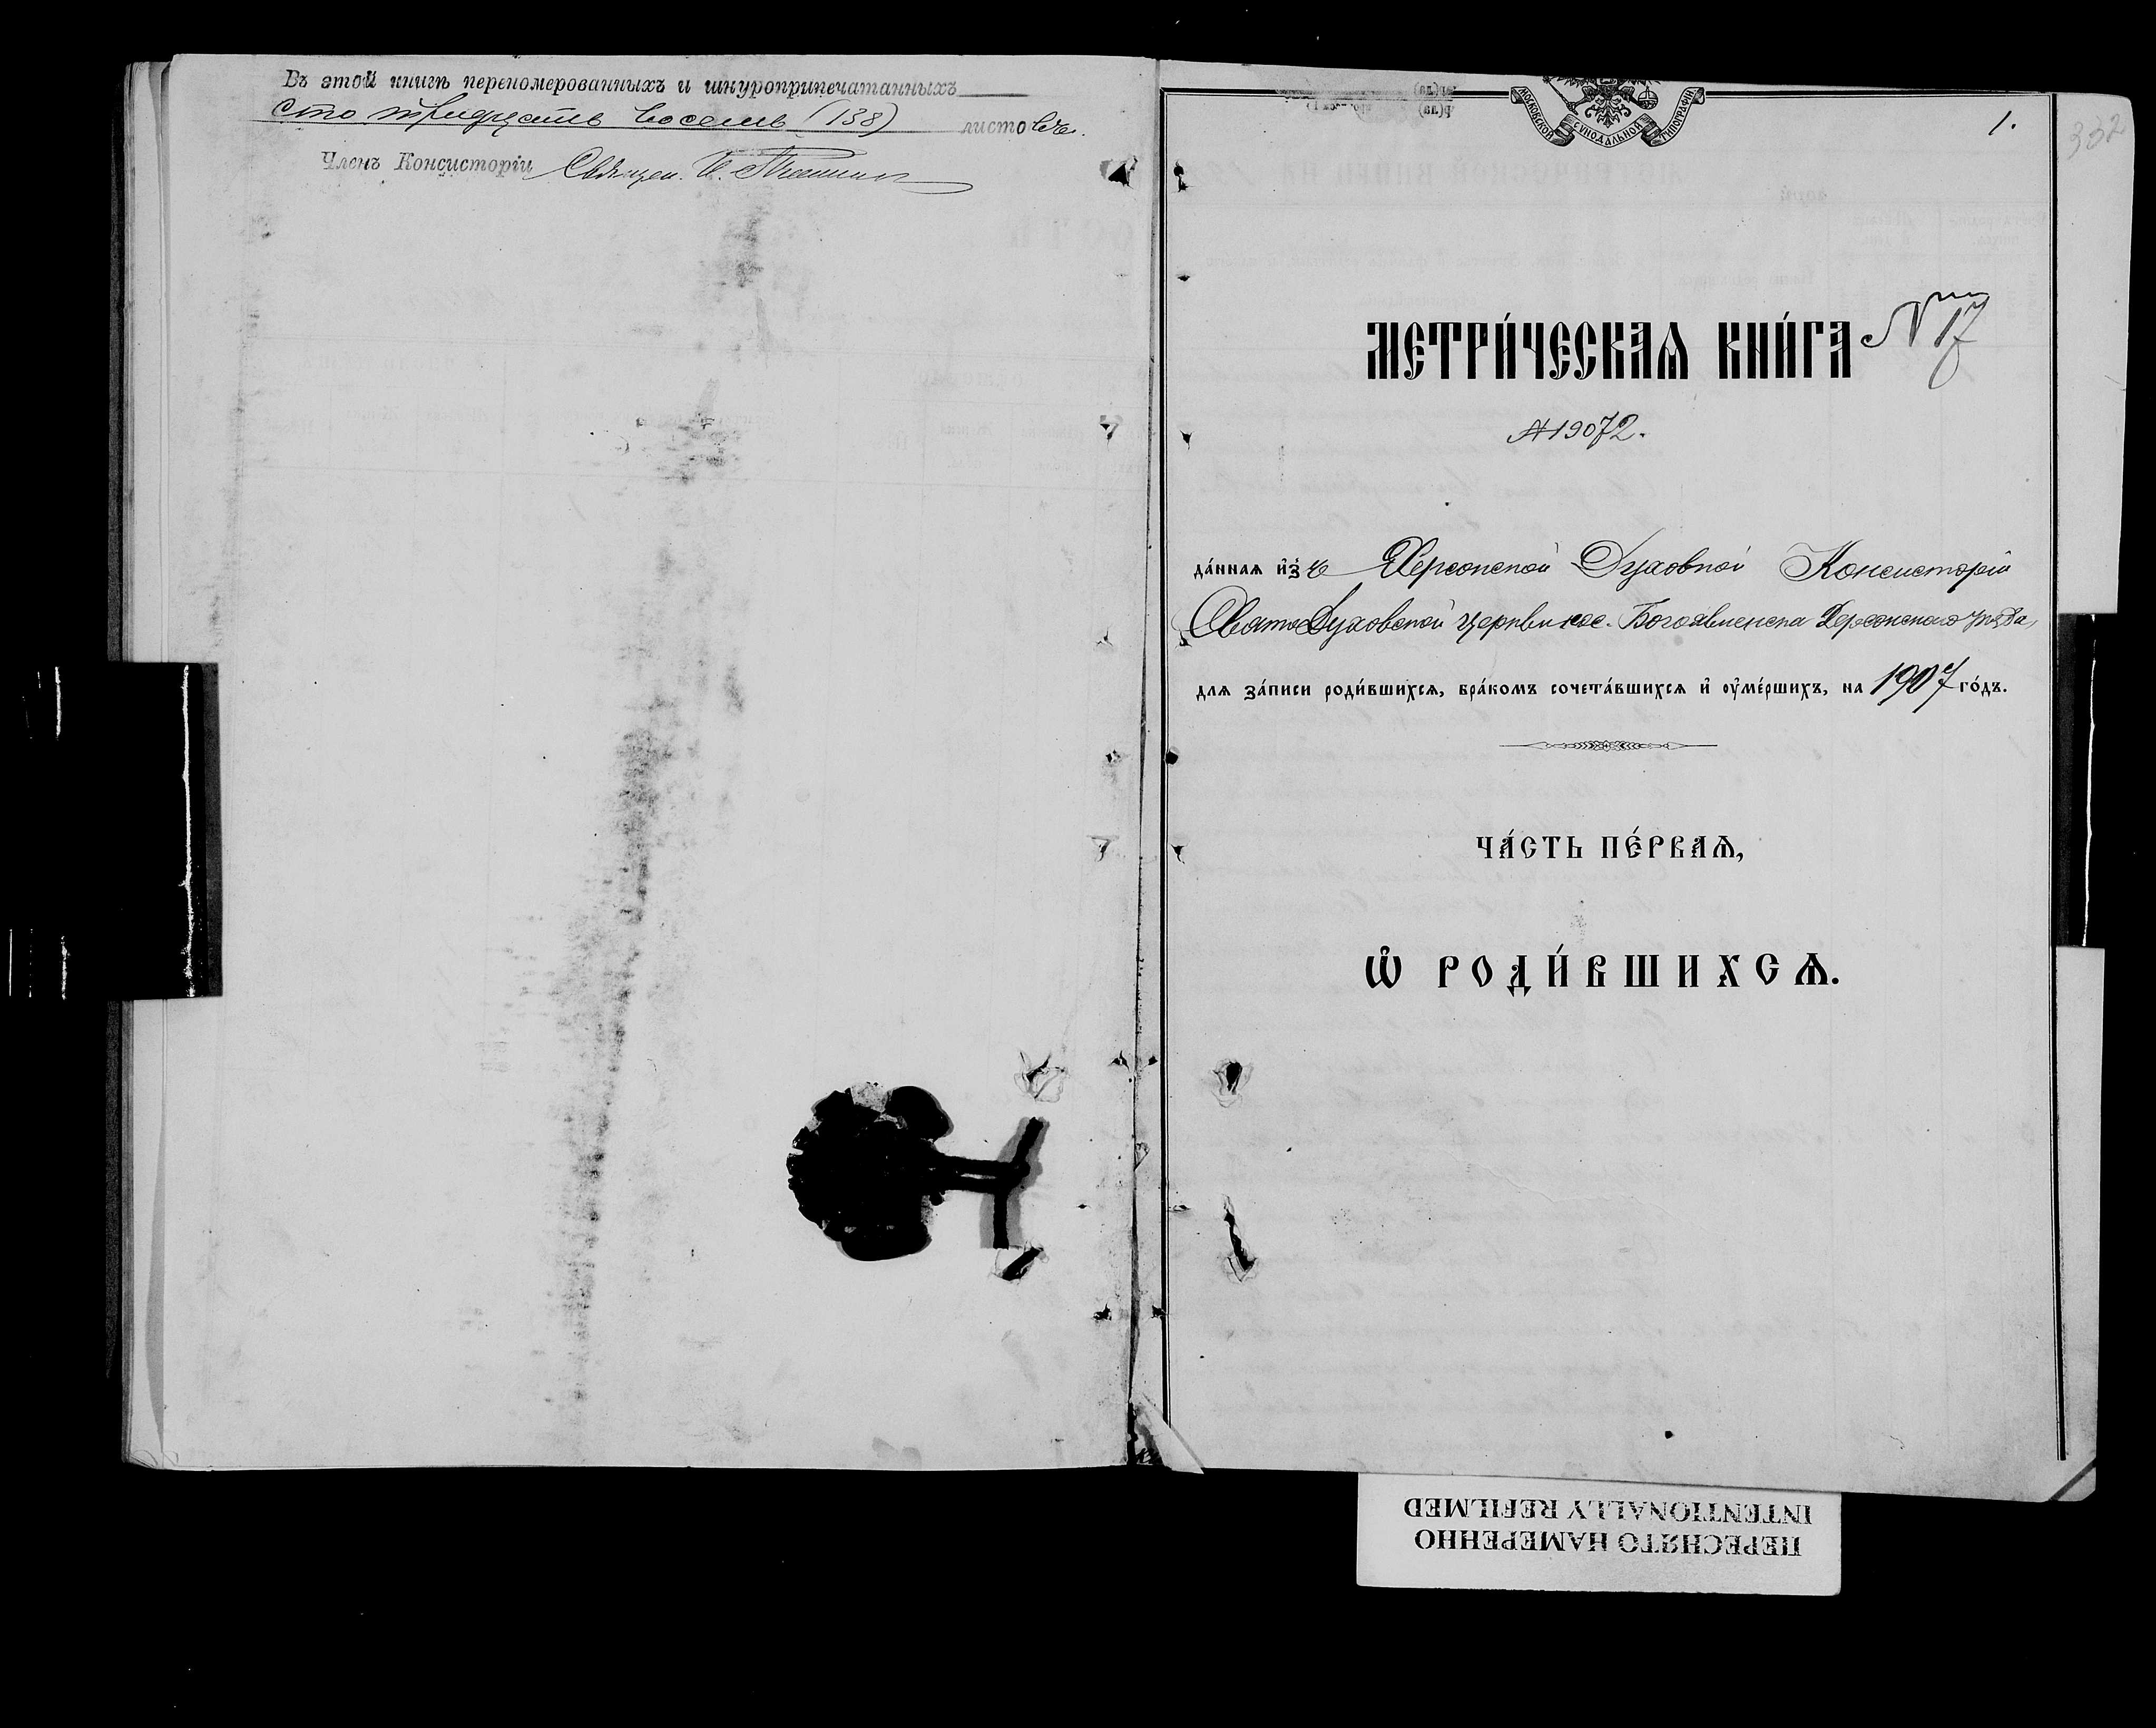 Въ этой книгѣ перенομерованныхъ и шнуроприпечатанныхъ
Сто тридцать восемь (138) листовъ.
Членъ Консисторіи Священ. И.
МОСКОВСКОЙ СѴНОДАЛЬНОЙ ТИПОГРАФІИ
1.
332
МЕТРИ́ЧЕСКАѦ КНИ́ГА № 17
№ 19072.
да́ннаѧ и҆зъ Херсонской Духовной Консисторіи
Свято Духовской церкви пос. Богоявленска Херсонскаго уѣзда,
длѧ за́писи роди́вшихсѧ, бра́комъ сочета́вшихсѧ и҆ оу҆ме́ршихъ, на 1907 го́дъ.
ЧА́СТЬ ПЕ́РВАѦ,
Ѽ РОДИ́ВШИХСѦ.
ПЕРЕСНЯТО НАМЕРЕННО
INTENTIONALLY REFILMED